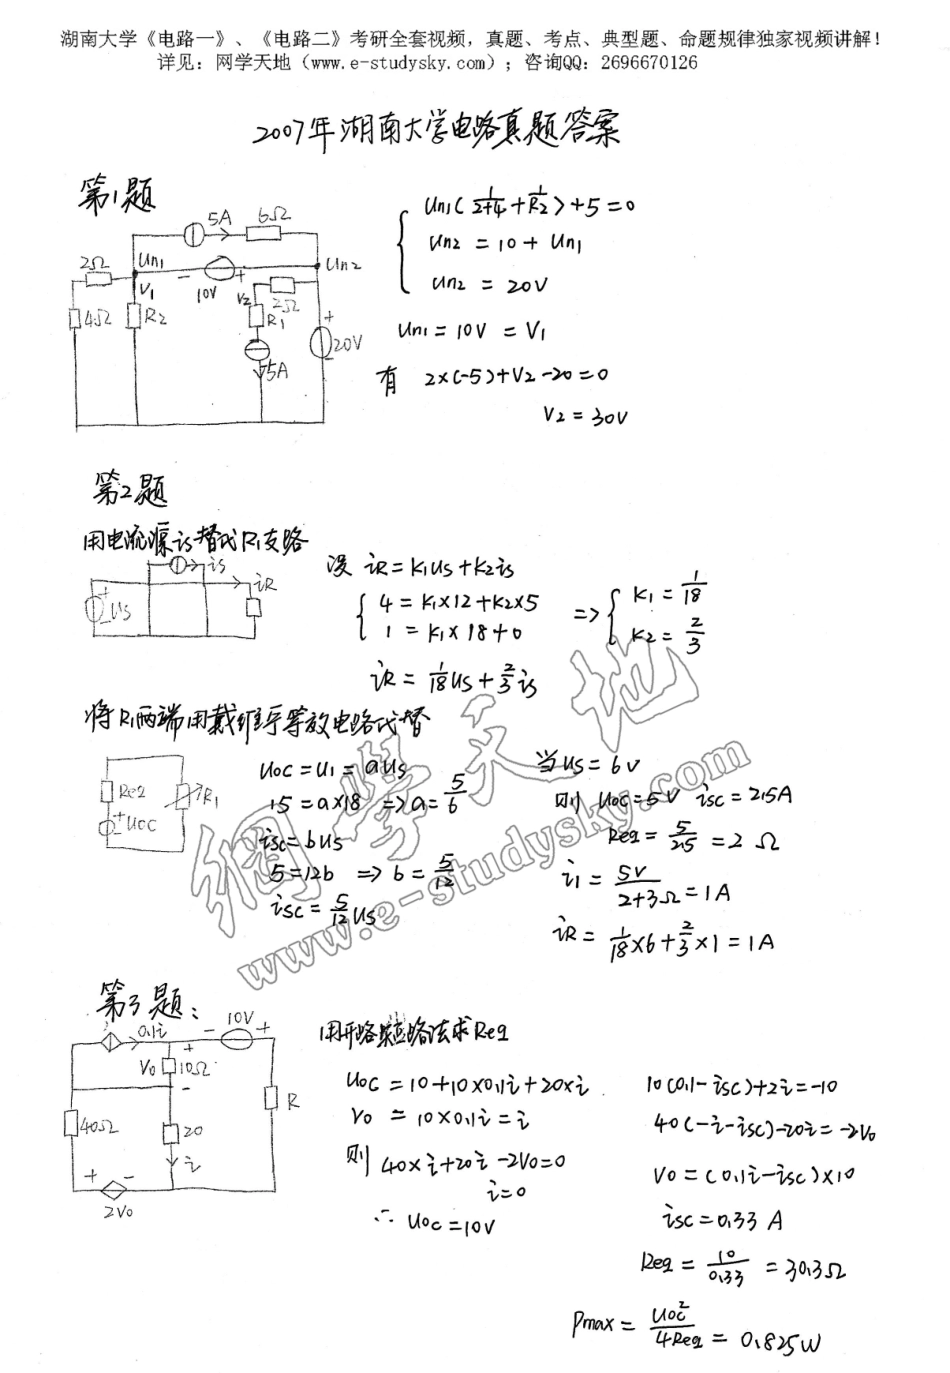 湖南大学《电路一》、《电路二》考研全套视频，真题、考点、典型题、命题规律独家视频讲解！
详见：网学天地（www.e-studysky.com）；咨询QQ：2696670126
2007年湖南大学电路真题答案
第1题
5A 6Ω
2Ω Un1 - 10V + Un2
V1 V2 2Ω
4Ω R2 R1 + 20V
5A
Un1(1/(2+4)+1/R2)+5=0
Un2 = 10 + Un1
Un2 = 20V
Un1 = 10V = V1
有 2×(-5)+V2-20=0
V2 = 30V
第2题
用电流源is替代R1支路
is
+ Us iR
设 iR=K1Us+K2is
4 = K1×12+K2×5
1 = K1×18+0
=> K1 = 1/18
K2 = 2/3
iR = 1/18 Us + 2/3 is
将R1两端用戴维宁等效电路代替
Req R1
+ Uoc
Uoc = U1 = aUs
15 = a×18 => a = 5/6
isc = bUs
5=12b => b = 5/12
isc = 5/12 Us
当Us = 6V
则 Uoc=5V isc = 2.5A
Req = 5/2.5 = 2 Ω
i1 = 5V/(2+3Ω) = 1A
iR = 1/18×6+2/3×1 = 1A
网学天地
www.e-studysky.com
第3题：
0.1i - 10V +
+ V0 10Ω -
R
40Ω 20
i
+ -
2V0
用开路短路法求Req
Uoc = 10+10×0.1i+20×i
V0 = 10×0.1i = i
则 40×i+20i-2V0=0
i=0
∴ Uoc=10V
10(0.1-isc)+2i=-10
40(-i-isc)-20i=-2V0
V0 = (0.1i-isc)×10
isc = 0.33 A
Req = 10/0.33 = 30.3Ω
Pmax = Uoc²/4Req = 0.825W